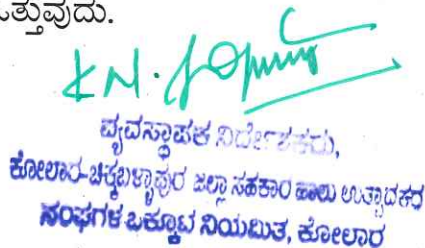 ತ್ತುವುದು.
K.N.
ವ್ಯವಸ್ಥಾಪಕ ನಿರ್ದೇಶಕರು,
ಕೋಲಾರ-ಚಿಕ್ಕಬಳ್ಳಾಪುರ ಜಿಲ್ಲಾ ಸಹಕಾರಿ ಹಾಲು ಉತ್ಪಾದಕರ
ಸಂಘಗಳ ಒಕ್ಕೂಟ ನಿಯಮಿತ, ಕೋಲಾರ